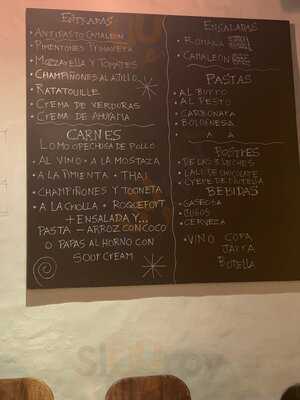 ENTRADAS
ANTIPASTO CAMALEON
PIMENTONES PRIMAVERA
MOZZARELLA Y TOMATES
CHAMPIÑONES AL AJILLO
RATATOUILLE
CREMA DE VERDURAS
CREMA DE AHUYAMA
CARNES
LOMO O PECHOSA DE POLLO
• AL VINO • A LA MOSTAZA
• A LA PIMIENTA • THAI
• CHAMPIÑONES Y TOCINETA
• A LA CHOLLA • ROQUEFORT
+ ENSALADA Y...
PASTA - ARROZ CON COCO
O PAPAS AL HORNO CON
SOUR CREAM
ENSALADAS
• ROMANA
• CAMALEON
PASTAS
• AL BURRO
• AL PESTO
• CARBONARA
• BOLOGNESA
POSTRES
• DE LAS 3 LECHES
• DE CHOCOLATE
• CREPE DE NUTELLA
BEBIDAS
• GASEOSA
• JUGOS
• CERVEZA
• VINO COPA
JARRA
BOTELLA